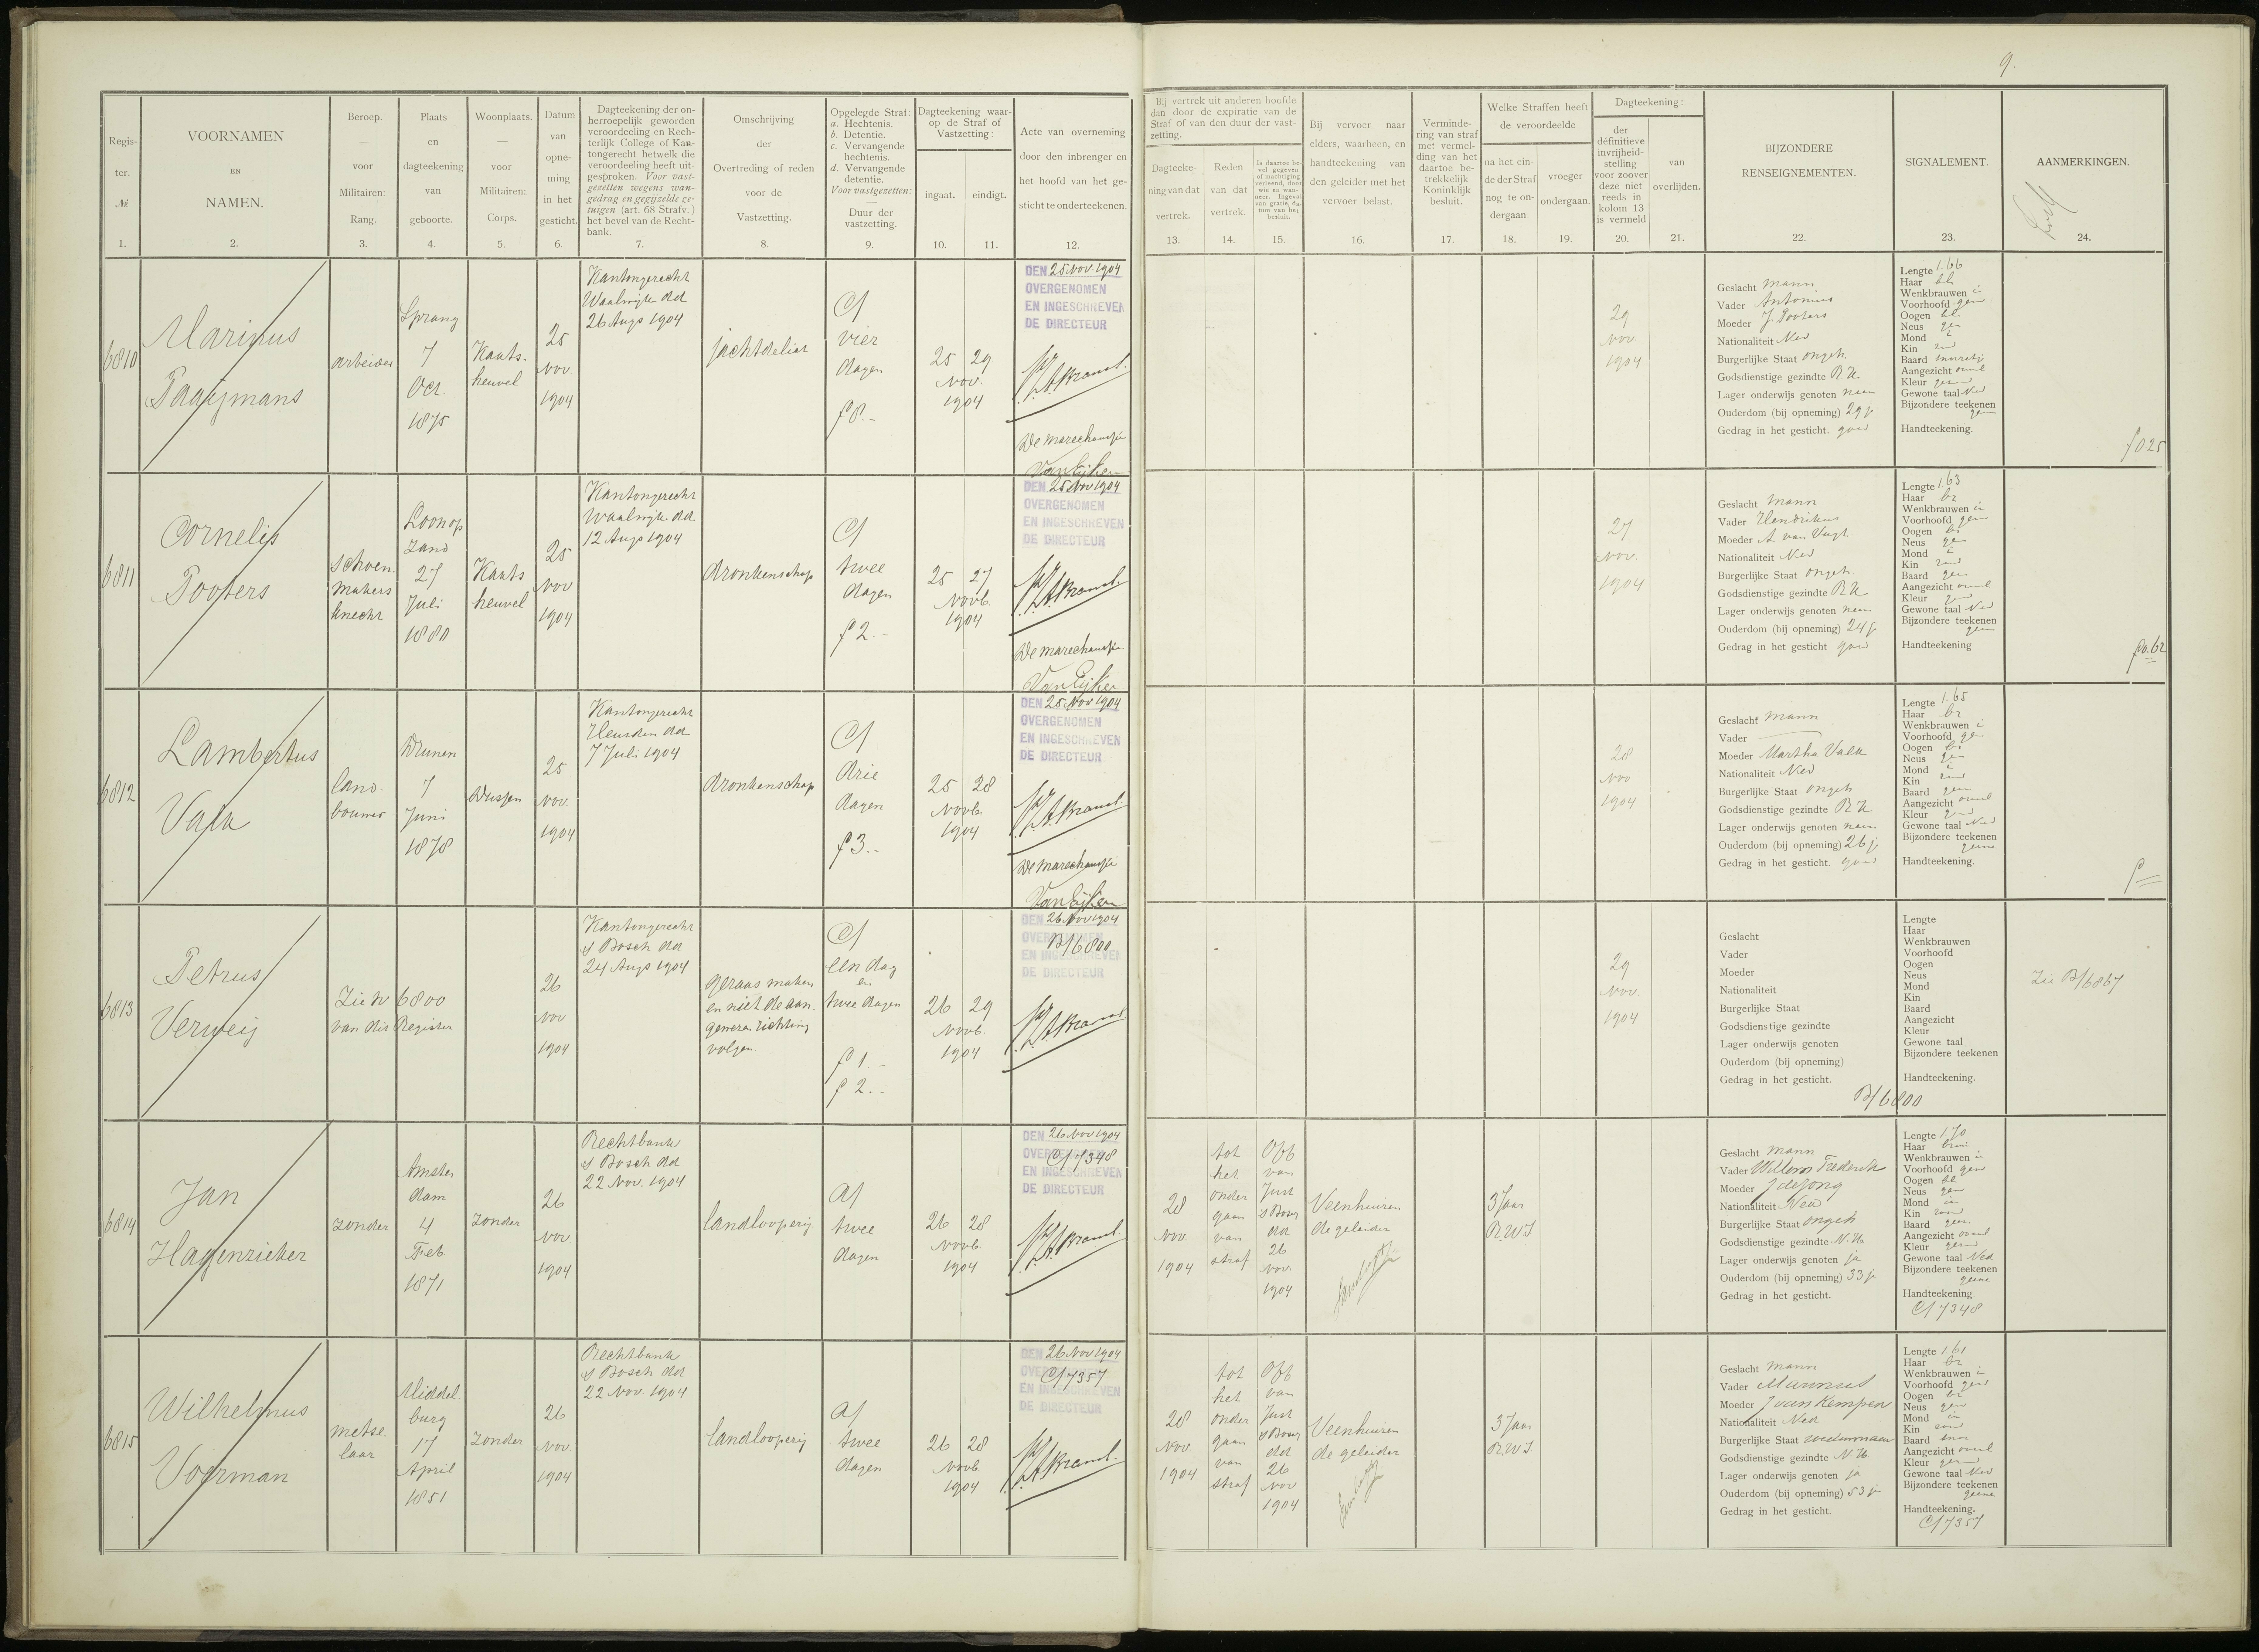 9.
Regis-
ter.
№
1.
VOORNAMEN
EN
NAMEN.
2.
Beroep.
—
voor
Militairen:
Rang.
3.
Plaats
en
dagteekening
van
geboorte.
4.
Woonplaats.
—
voor
Militairen:
Corps.
5.
Datum
van
opne-
ming
in het
gesticht.
6.
Dagteekening der on-
herroepelijk geworden
veroordeeling en Rech-
terlijk College of Kan-
tongerecht hetwelk die
veroordeeling heeft uit-
gesproken. Voor vast-
gezetten wegens wan-
gedrag en gegijzelde ge-
tuigen (art. 68 Strafv.)
het bevel van de Recht-
bank.
7.
Omschrijving
der
Overtreding of reden
voor de
Vastzetting.
8.
Opgelegde Straf:
a. Hechtenis.
b. Detentie.
c. Vervangende
hechtenis.
d. Vervangende
detentie.
Voor vastgezetten:
—
Duur der
vastzetting.
9.
Dagteekening waar-
op de Straf of
Vastzetting:
ingaat.
eindigt.
10.
11.
Acte van overneming
door den inbrenger en
het hoofd van het ge-
sticht te onderteekenen.
12.
Bij vertrek uit anderen hoofde
dan door de expiratie van de
Straf of van den duur der vast-
zetting.
Dagteeke-
ning van dat
vertrek.
13.
Reden
van dat
vertrek.
14.
Is daartoe be-
vel gegeven
of machtiging
verleend, door
wie en wan-
neer. Ingeval
van gratie, da-
tum van het
besluit.
15.
Bij vervoer naar
elders, waarheen, en
handteekening van
den geleider met het
vervoer belast.
16.
Verminde-
ring van straf
met vermel-
ding van het
daartoe be-
trekkelijk
Koninklijk
besluit.
17.
Welke Straffen heeft
de veroordeelde
na het ein-
de der Straf
nog te on-
dergaan.
18.
vroeger
ondergaan.
19.
Dagteekening:
der
définitieve
invrijheid-
stelling
voor zoover
deze niet
reeds in
kolom 13
is vermeld
20.
van
overlijden.
21.
BIJZONDERE
RENSEIGNEMENTEN.
22.
SIGNALEMENT.
23.
AANMERKINGEN.
24.
6810
Marinus
Paaijmans
arbeider
Sprang
7
Oct
1875
Kaats-
heuvel
25
Nov.
1904
Kantongerecht
Waalwijk dd
26 Augs 1904
jachtdelict
C/
vier
dagen
f 8.-
25 29
Nov.
1904
DEN 25 Nov. 1904
OVERGENOMEN
EN INGESCHREVEN
DE DIRECTEUR
De marechaussee
Van Eijken
29
Nov.
1904
Geslacht mann
Vader Antonius
Moeder J Pooters
Nationaliteit Ned
Burgerlijke Staat ongeh.
Godsdienstige gezindte R K
Lager onderwijs genoten neen
Ouderdom (bij opneming) 29 j
Gedrag in het gesticht. goed
Lengte 1.66
Haar bl
Wenkbrauwen i
Voorhoofd gew
Oogen bl.
Neus gew
Mond i
Kin rond
Baard
Aangezicht ovaal
Kleur gezond
Gewone taal Ned
Bijzondere teekenen
geen
Handteekening.
f 0 25
6811
Cornelis
Pooters
Schoen
makers
knecht
Loonop
Zand
27
Juli
1880
Kaats
heuvel
25
Nov
1904
Kantongerecht
Waalwijk dd.
12 Augs 1904
dronkenschap
C/
twee
dagen
f 2.-
25 27
Novb.
1904
DEN 25 Nov 1904
OVERGENOMEN
EN INGESCHREVEN
DE DIRECTEUR
De marechaussee
Van Eijken
27
Nov.
1904
Geslacht mann
Vader Hendrikus
Moeder A van Vugt
Nationaliteit Ned
Burgerlijke Staat ongeh.
Godsdienstige gezindte R K
Lager onderwijs genoten neen
Ouderdom (bij opneming) 24 j
Gedrag in het gesticht goed
Lengte 1.63
Haar br
Wenkbrauwen i
Voorhoofd gew
Oogen br
Neus gew
Mond i
Kin rond
Baard geen
Aangezicht ovaal
Kleur gez
Gewone taal Ned
Bijzondere teekenen
geen
Handteekening
f 0.62
6812
Lambertus
Valk
land-
bouwer
Drunen
7
Juni
1878
Dussen
25
Nov.
1904
Kantongerecht
Heusden dd
7 Juli 1904
dronkenschap
C/
drie
dagen
f 3.-
25 28
Novb.
1904
DEN 25 Nov 1904
OVERGENOMEN
EN INGESCHREVEN
DE DIRECTEUR
De marechaussee
Van Eijken
28
Nov
1904
Geslacht mann
Vader
Moeder Martha Valk
Nationaliteit Ned
Burgerlijke Staat ongeh
Godsdienstige gezindte R K
Lager onderwijs genoten neen
Ouderdom (bij opneming) 26 j
Gedrag in het gesticht. goed
Lengte 1.65
Haar br
Wenkbrauwen i
Voorhoofd gew
Oogen br
Neus gew
Mond i
Kin rond
Baard geen
Aangezicht ovaal
Kleur gez
Gewone taal Ned
Bijzondere teekenen
geene
Handteekening.
6813
Petrus
Verweij
Zie № 6800
van dit Register
26
Nov
1904
Kantongerecht
's Bosch dd
24 Augs 1904
geraas maken
en niet de aan-
gewezen richting
volgen
C/
een dag
en
twee dagen
f 1.-
f 2.-
26 29
Novb.
1904
DEN 26 Nov 1904
OVERGENOMEN
B/6800
EN INGESCHREVEN
DE DIRECTEUR
29
Nov.
1904
Geslacht
Vader
Moeder
Nationaliteit
Burgerlijke Staat
Godsdienstige gezindte
Lager onderwijs genoten
Ouderdom (bij opneming)
Gedrag in het gesticht.
B/6800
Lengte
Haar
Wenkbrauwen
Voorhoofd
Oogen
Neus
Mond
Kin
Baard
Aangezicht
Kleur
Gewone taal
Bijzondere teekenen
Handteekening.
Zie B/6867
6814
Jan
Hagenzieker
zonder
Amster
dam
4
Feb.
1871
zonder
26
Nov.
1904
Rechtbank
's Bosch dd
22 Nov. 1904
landlooperij
A/
twee
dagen
26 28
Novb
1904
DEN 26 Nov 1904
OVERGENOMEN
C/7348
EN INGESCHREVEN
DE DIRECTEUR
28
Nov.
1904
tot
het
onder
gaan
van
straf
Off
van
Just
's Bosch
dd
26
Nov.
1904
Veenhuizen
de geleider
3 Jaar
R.W.I
Geslacht mann
Vader Willem Frederik
Moeder J de Jong
Nationaliteit Ned
Burgerlijke Staat ongeh
Godsdienstige gezindte N.H.
Lager onderwijs genoten ja
Ouderdom (bij opneming) 33 j
Gedrag in het gesticht.
Lengte 1.70
Haar bruin
Wenkbrauwen i
Voorhoofd gew
Oogen bl
Neus gew
Mond i
Kin rond
Baard geen
Aangezicht ovaal
Kleur gezond
Gewone taal Ned
Bijzondere teekenen
geene
Handteekening
C/7348
6815
Wilhelmus
Voerman
metse
laar
Middel
burg
17
April
1851
zonder
26
Nov.
1904
Rechtbank
's Bosch dd
22 Nov. 1904
landlooperij
A/
twee
dagen
26 28
Novb
1904
DEN 26 Nov 1904
OVERGENOMEN
C/7357
EN INGESCHREVEN
DE DIRECTEUR
28
Nov.
1904
tot
het
onder
gaan
van
straf
Off
van
Just
's Bosch
dd
26
Nov
1904
Veenhuizen
de geleider
3 Jaar
R.W.I
Geslacht mann
Vader
Moeder J van Kempen
Nationaliteit Ned
Burgerlijke Staat weduwnaar
Godsdienstige gezindte N.H.
Lager onderwijs genoten ja
Ouderdom (bij opneming) 53 j
Gedrag in het gesticht.
Lengte 1.61
Haar br
Wenkbrauwen i
Voorhoofd gew
Oogen br
Neus gew
Mond i
Kin rond
Baard snor
Aangezicht ovaal
Kleur gezond
Gewone taal Ned
Bijzondere teekenen
geene
Handteekening.
C/7357